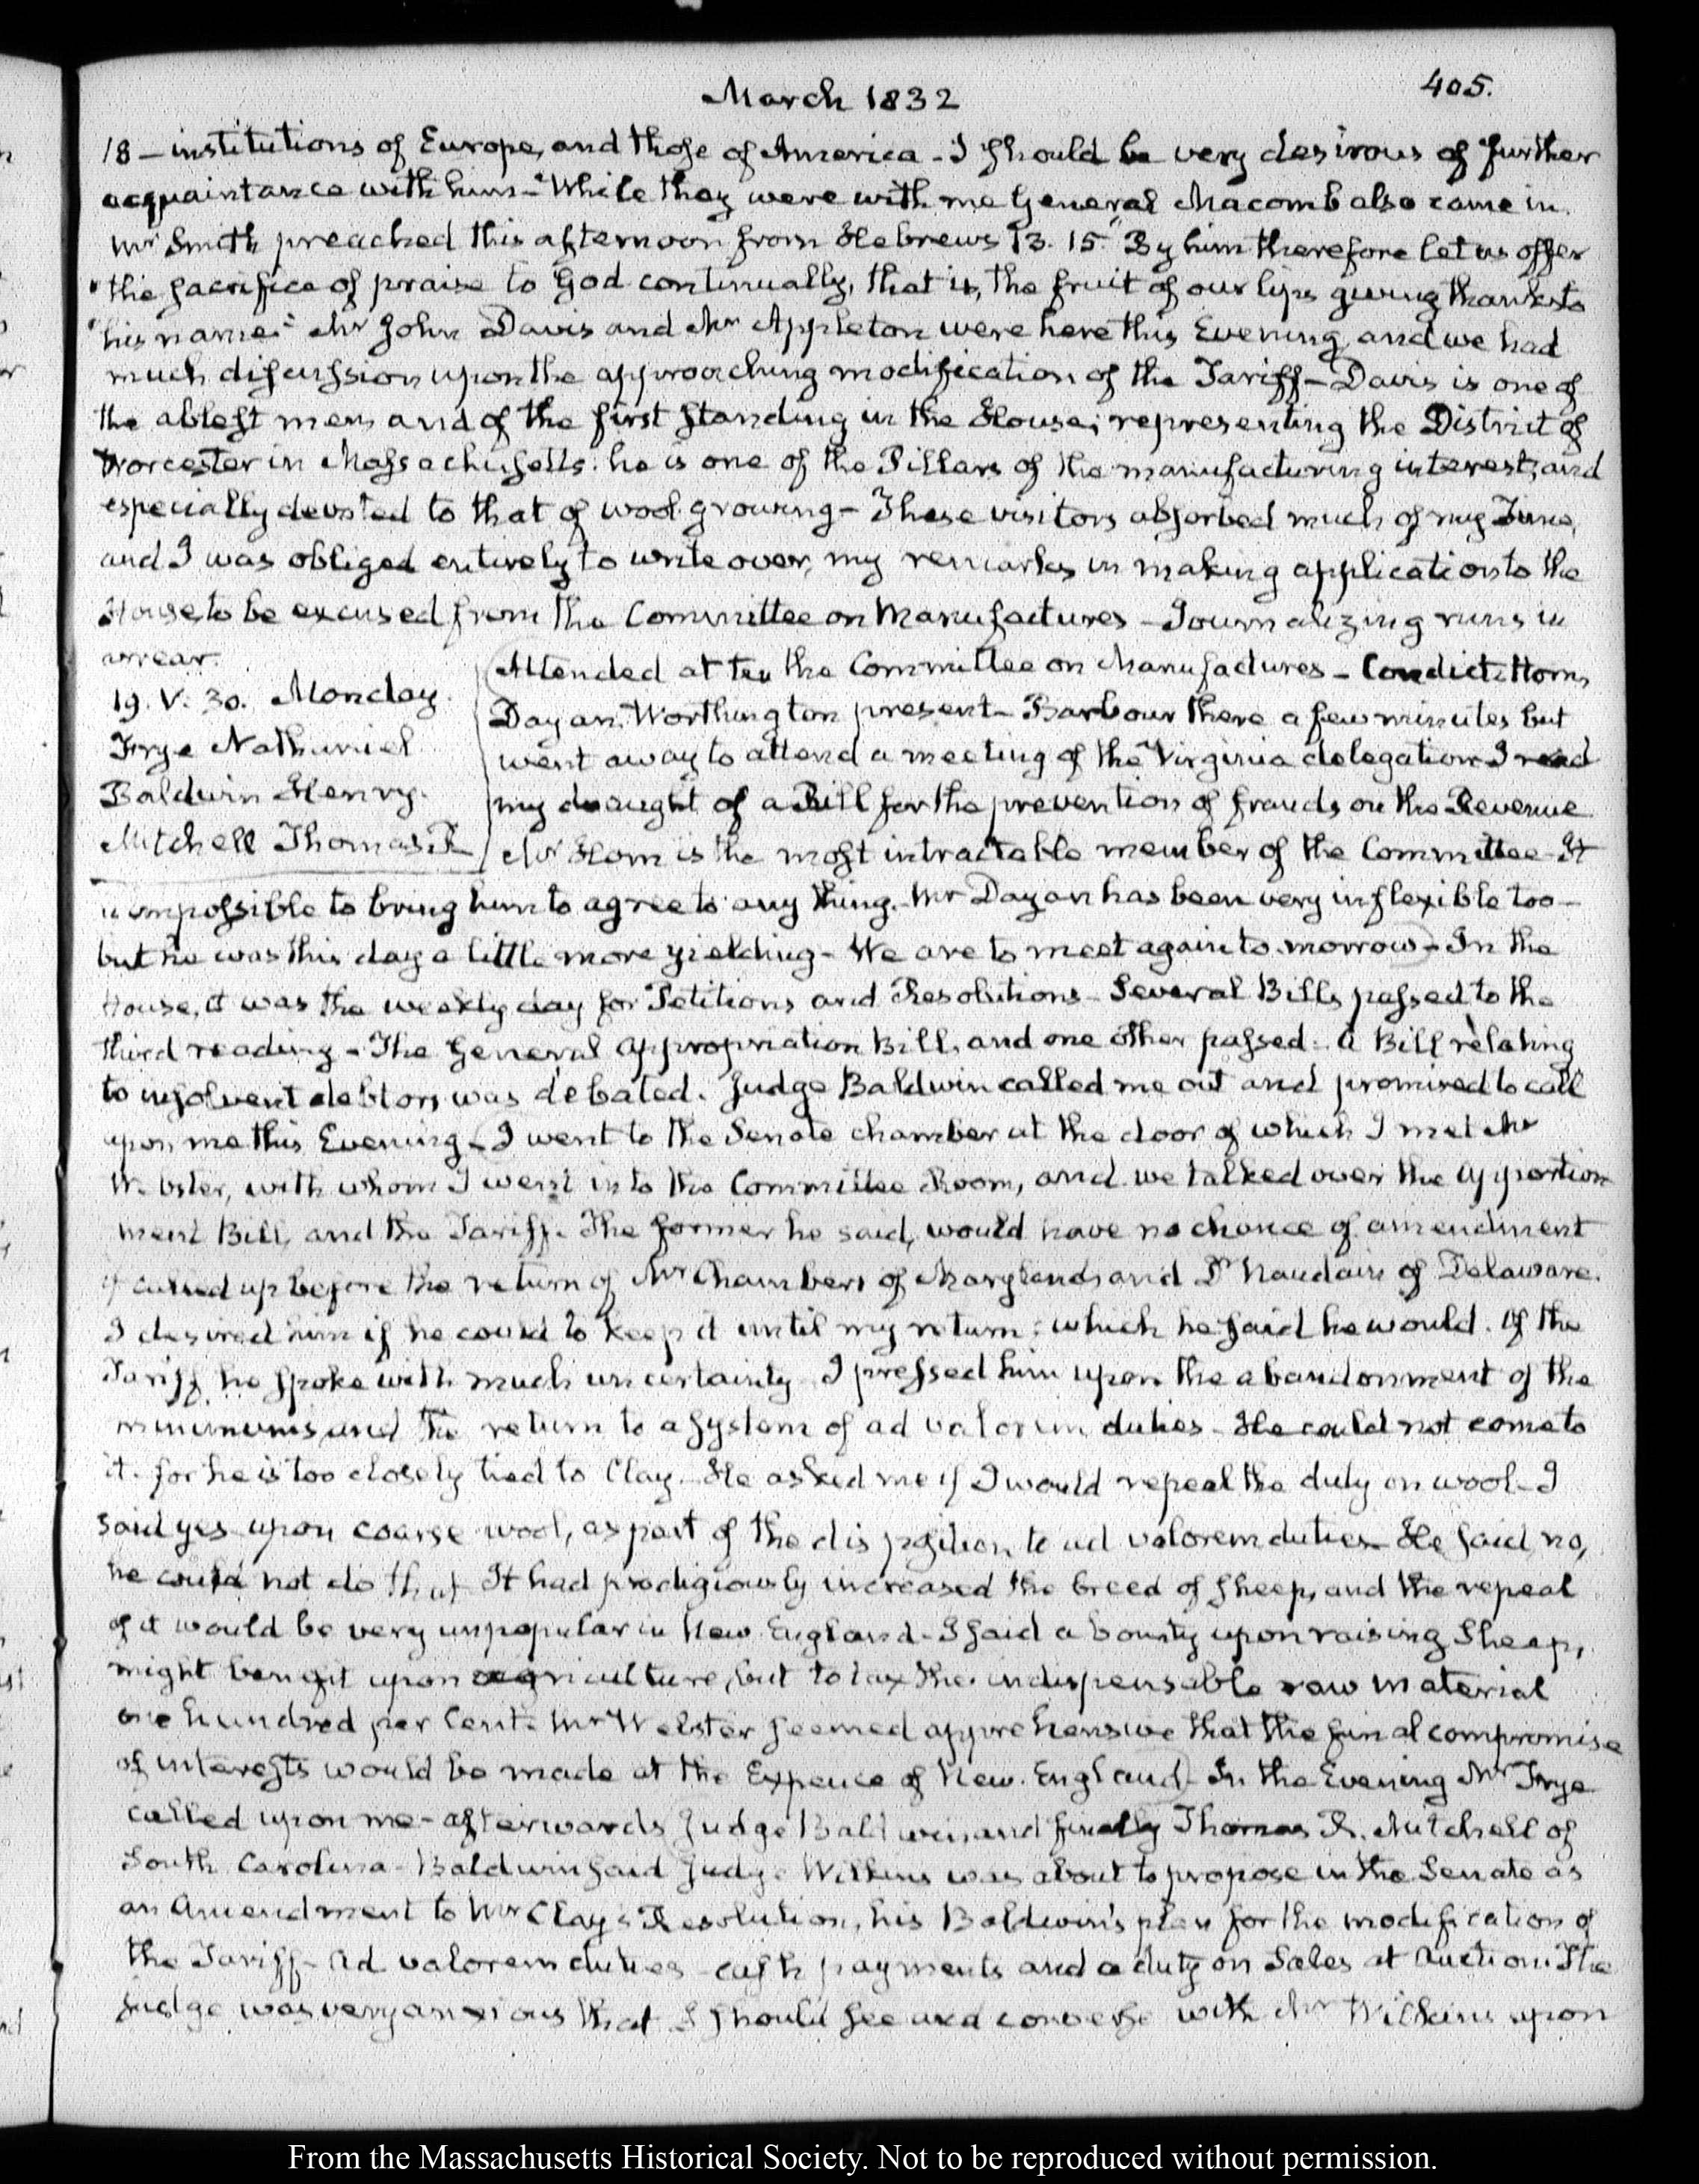 March 1832
405.
18 – institutions of Europe, and those of America – I should be very desirous of further
acquaintance with him – While they were with me General Macomb also came in.
Mr Smith preached this afternoon from Hebrews 13. 15. "By him therefore let us offer
"the sacrifice of praise to God continually, that is, the fruit of our lips giving thanks to
"his name." Mr John Davis and Mr Appleton were here this Evening, and we had
much discussion upon the approaching modification of the Tariff – Davis is one of
the ablest men, and of the first standing in the House; representing the District of
Worcester in Massachusetts: he is one of the Pillars of the manufacturing interest, and
especially devoted to that of wool growing – These visitors absorbed much of my Time,
and I was obliged entirely to write over, my remarks in making application to the
House to be excused from the Committee on Manufactures – Journalizing runs in
arrear.
19. V. 30. Monday.
Frye Nathaniel
Baldwin Henry.
Mitchell Thomas R
Attended at ten the Committee on Manufactures – Condict, Horn,
Dayan, Worthington present – Barbour there a few minutes but
went away to attend a meeting of the Virginia delegation I read
my draught of a Bill for the prevention of frauds on the Revenue
Mr Horn is the most intractable member of the Committee – It
is impossible to bring him to agree to any thing. Mr Dayan has been very inflexible too –
but he was this day a little more yielding – We are to meet again to-morrow – In the
House, it was the weekly day for Petitions and Resolutions – Several Bills passed to the
third reading – The General appropriation Bill, and one other passed. A Bill relating
to insolvent debtors was debated. Judge Baldwin called me out and promised to call
upon me this Evening – I went to the Senate chamber at the door of which I met Mr
Webster, with whom I went into the Committee Room, and we talked over the apportion
ment Bill, and the Tariff. The former he said, would have no chance of amendment
if called up before the return of Mr Chambers of Maryland, and Dr Naudain of Delaware.
I desired him if he could to keep it until my return; which he said he would. Of the
Tariff he spoke with much uncertainty I pressed him upon the abandonment of the
minimums, and the return to a system of ad valorem duties – He could not come to
it. for he is too closely tied to Clay. He asked me if I would repeal the duty on wool – I
said yes upon coarse wool, as part of the disposition to ad valorem duties – He said no,
he could not do that It had prodigiously increased the breed of sheep, and the repeal
of it would be very unpopular in New England – I said a bounty upon raising Sheep,
might benefit upon agriculture, but to tax the indispensable raw material
one hundred per Cent. Mr Webster seemed apprehensive that the final compromise
of interests would be made at the Expence of New England – In the Evening Mr Frye
called upon me – afterwards Judge Baldwin and finally Thomas R. Mitchell of
South Carolina – Baldwin said Judge Wilkins was about to propose in the Senate as
an Amendment to Mr Clay's Resolution, his Baldwin's plan for the modification of
the Tariff – ad valorem duties – cash payments and a duty on Sales at Auction. The
Judge was very anxious that I should see and converse with Mr Wilkins upon
From the Massachusetts Historical Society. Not to be reproduced without permission.